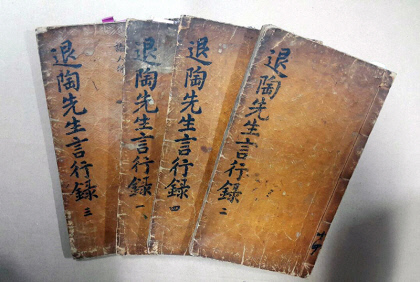 退陶先生言行錄 三
退陶先生言行錄 一
退陶先生言行錄 四
退陶先生言行錄 二